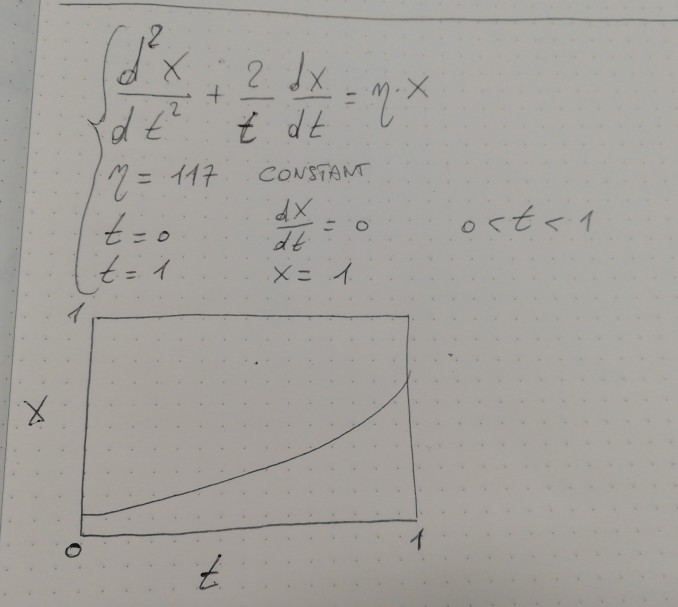 d²x/dt² + 2/t dx/dt = η·x
η = 117 CONSTANT
t = 0 dx/dt = 0 0 < t < 1
t = 1 x = 1
1
x
0 1
t